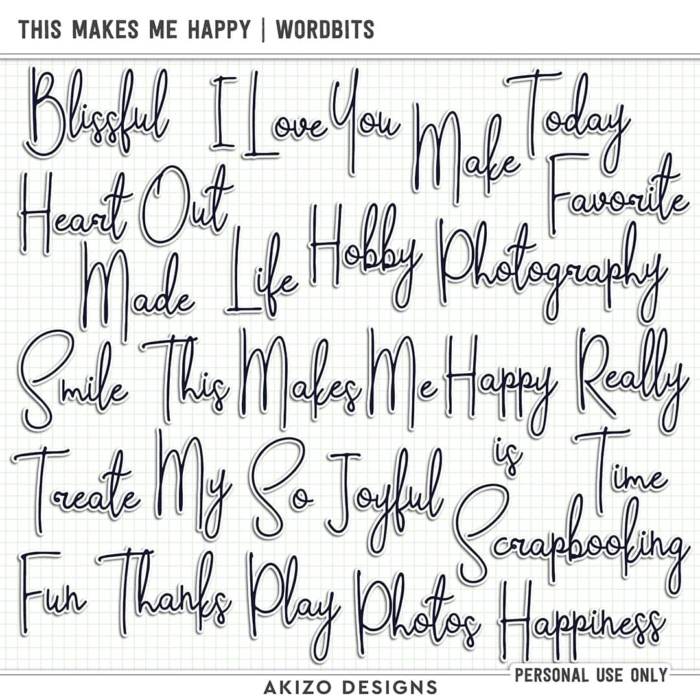 THIS MAKES ME HAPPY | WORDBITS
Blissful I Love You Make Today
Heart Out Favorite
Made Life Hobby Photography
Smile This Makes Me Happy Really
Treate My So Joyful is Time
Scrapbooking
Fun Thanks Play Photos Happiness
PERSONAL USE ONLY
AKIZO DESIGNS